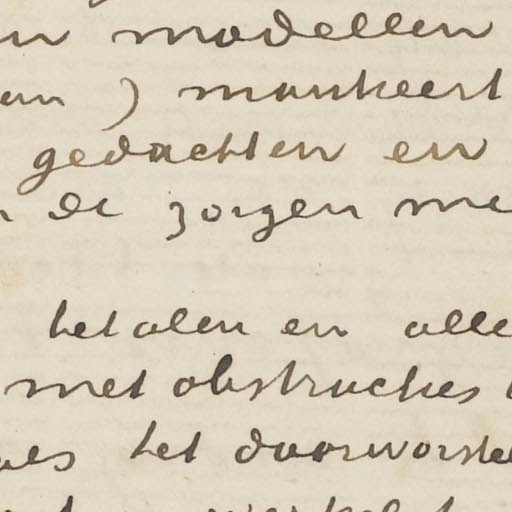 modellen
) mankeert
gedachten en
de zorgen me
betalen en alle
met obstructies
het doorworste